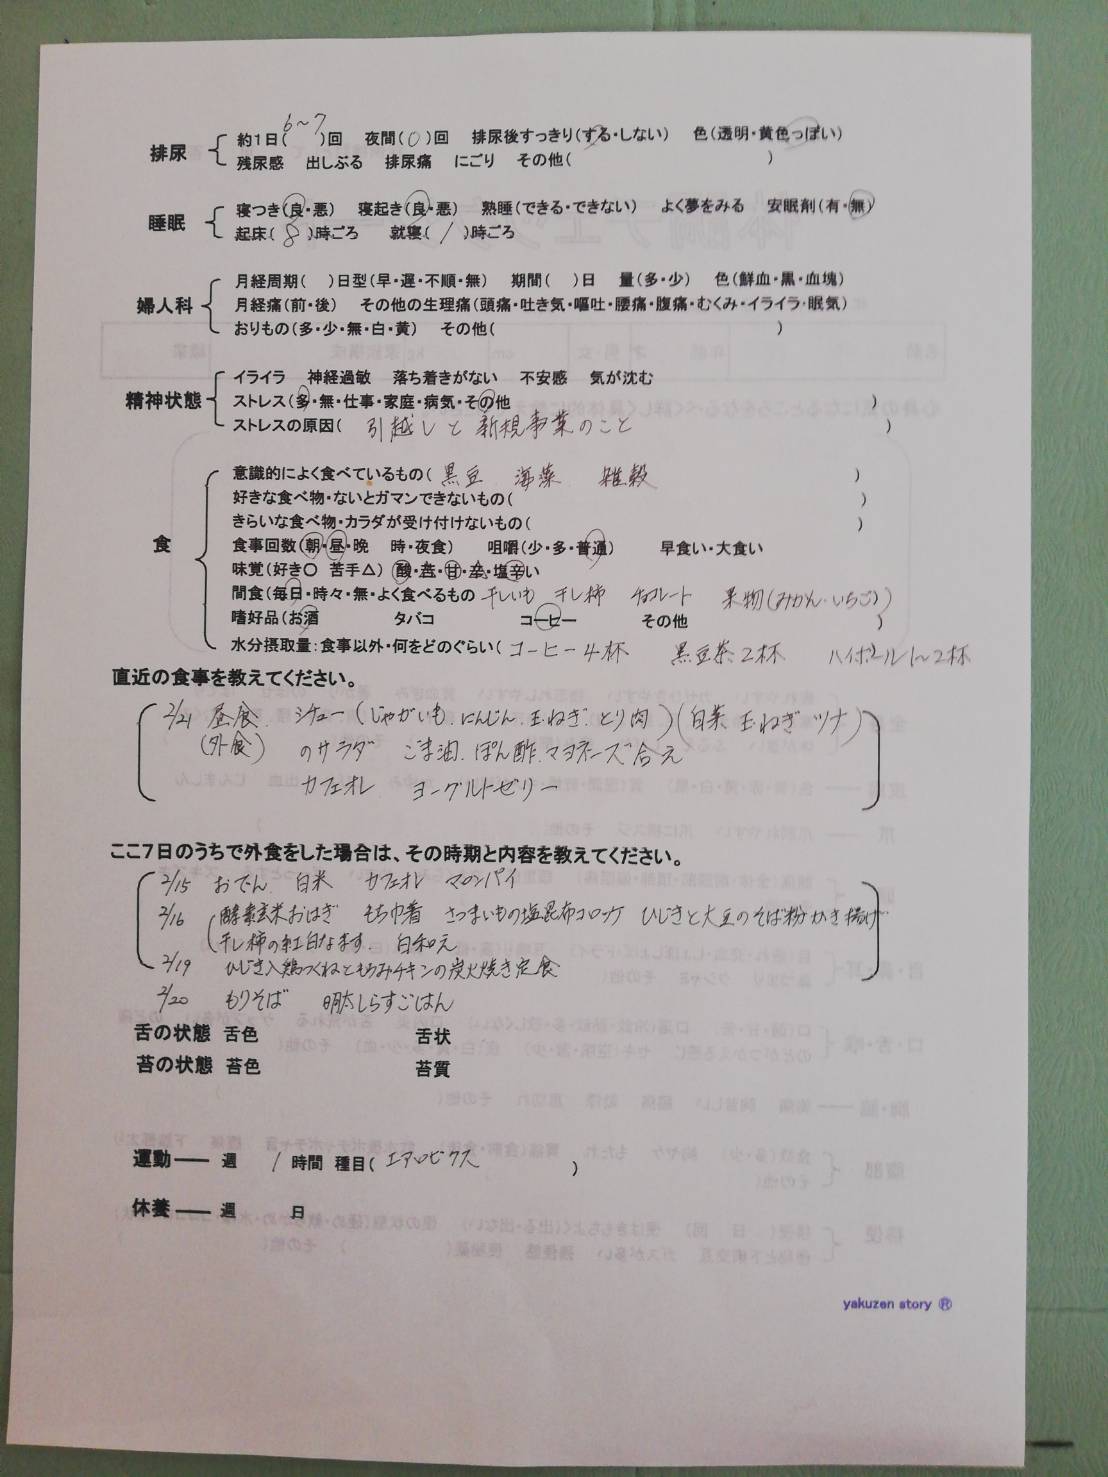 排尿
約1日(6～7)回 夜間(0)回 排尿後すっきり(する・しない) 色(透明・黄色っぽい)
残尿感 出しぶる 排尿痛 にごり その他( )
睡眠
寝つき(良・悪) 寝起き(良・悪) 熟睡(できる・できない) よく夢をみる 安眠剤(有・無)
起床(8)時ごろ 就寝(1)時ごろ
婦人科
月経周期( )日型(早・遅・不順・無) 期間( )日 量(多・少) 色(鮮血・黒・血塊)
月経痛(前・後) その他の生理痛(頭痛・吐き気・嘔吐・腰痛・腹痛・むくみ・イライラ・眠気)
おりもの(多・少・無・白・黄) その他( )
精神状態
イライラ 神経過敏 落ち着きがない 不安感 気が沈む
ストレス(多・無・仕事・家庭・病気・その他 )
ストレスの原因( 引越しと新規事業のこと )
食
意識的によく食べているもの( 黒豆 海藻 雑穀 )
好きな食べ物・ないとガマンできないもの( )
きらいな食べ物・カラダが受け付けないもの( )
食事回数(朝・昼・晩 時・夜食) 咀嚼(少・多・普通) 早食い・大食い
味覚(好き○ 苦手△) 酸・苦・甘・辛・塩辛い
間食(毎日・時々・無・よく食べるもの 干しいも 干し柿 チョコレート 果物(みかん・いちご))
嗜好品(お酒 タバコ コーヒー その他 )
水分摂取量:食事以外・何をどのぐらい( コーヒー4杯 黒豆茶2杯 ハイボール1～2杯
直近の食事を教えてください。
2/21 昼食 シチュー(じゃがいも、にんじん、玉ねぎ、とり肉)(白菜 玉ねぎ ツナ)
(外食) のサラダ ごま油、ぽん酢、マヨネーズ合え
カフェオレ ヨーグルトゼリー
ここ7日のうちで外食をした場合は、その時期と内容を教えてください。
2/15 おでん 白米 カフェオレ マロンパイ
2/16 酵素玄米おはぎ もち巾着 さつまいもの塩昆布コロッケ ひじきと大豆のそば粉かき揚げ
干し柿の紅白なます、白和え
2/19 ひじき入鶏つくねともろみチキンの炭火焼き定食
2/20 もりそば 明太しらすごはん
舌の状態 舌色 舌状
苔の状態 苔色 苔質
運動── 週 1 時間 種目( エアロビクス )
休養── 週 日
yakuzen story ®